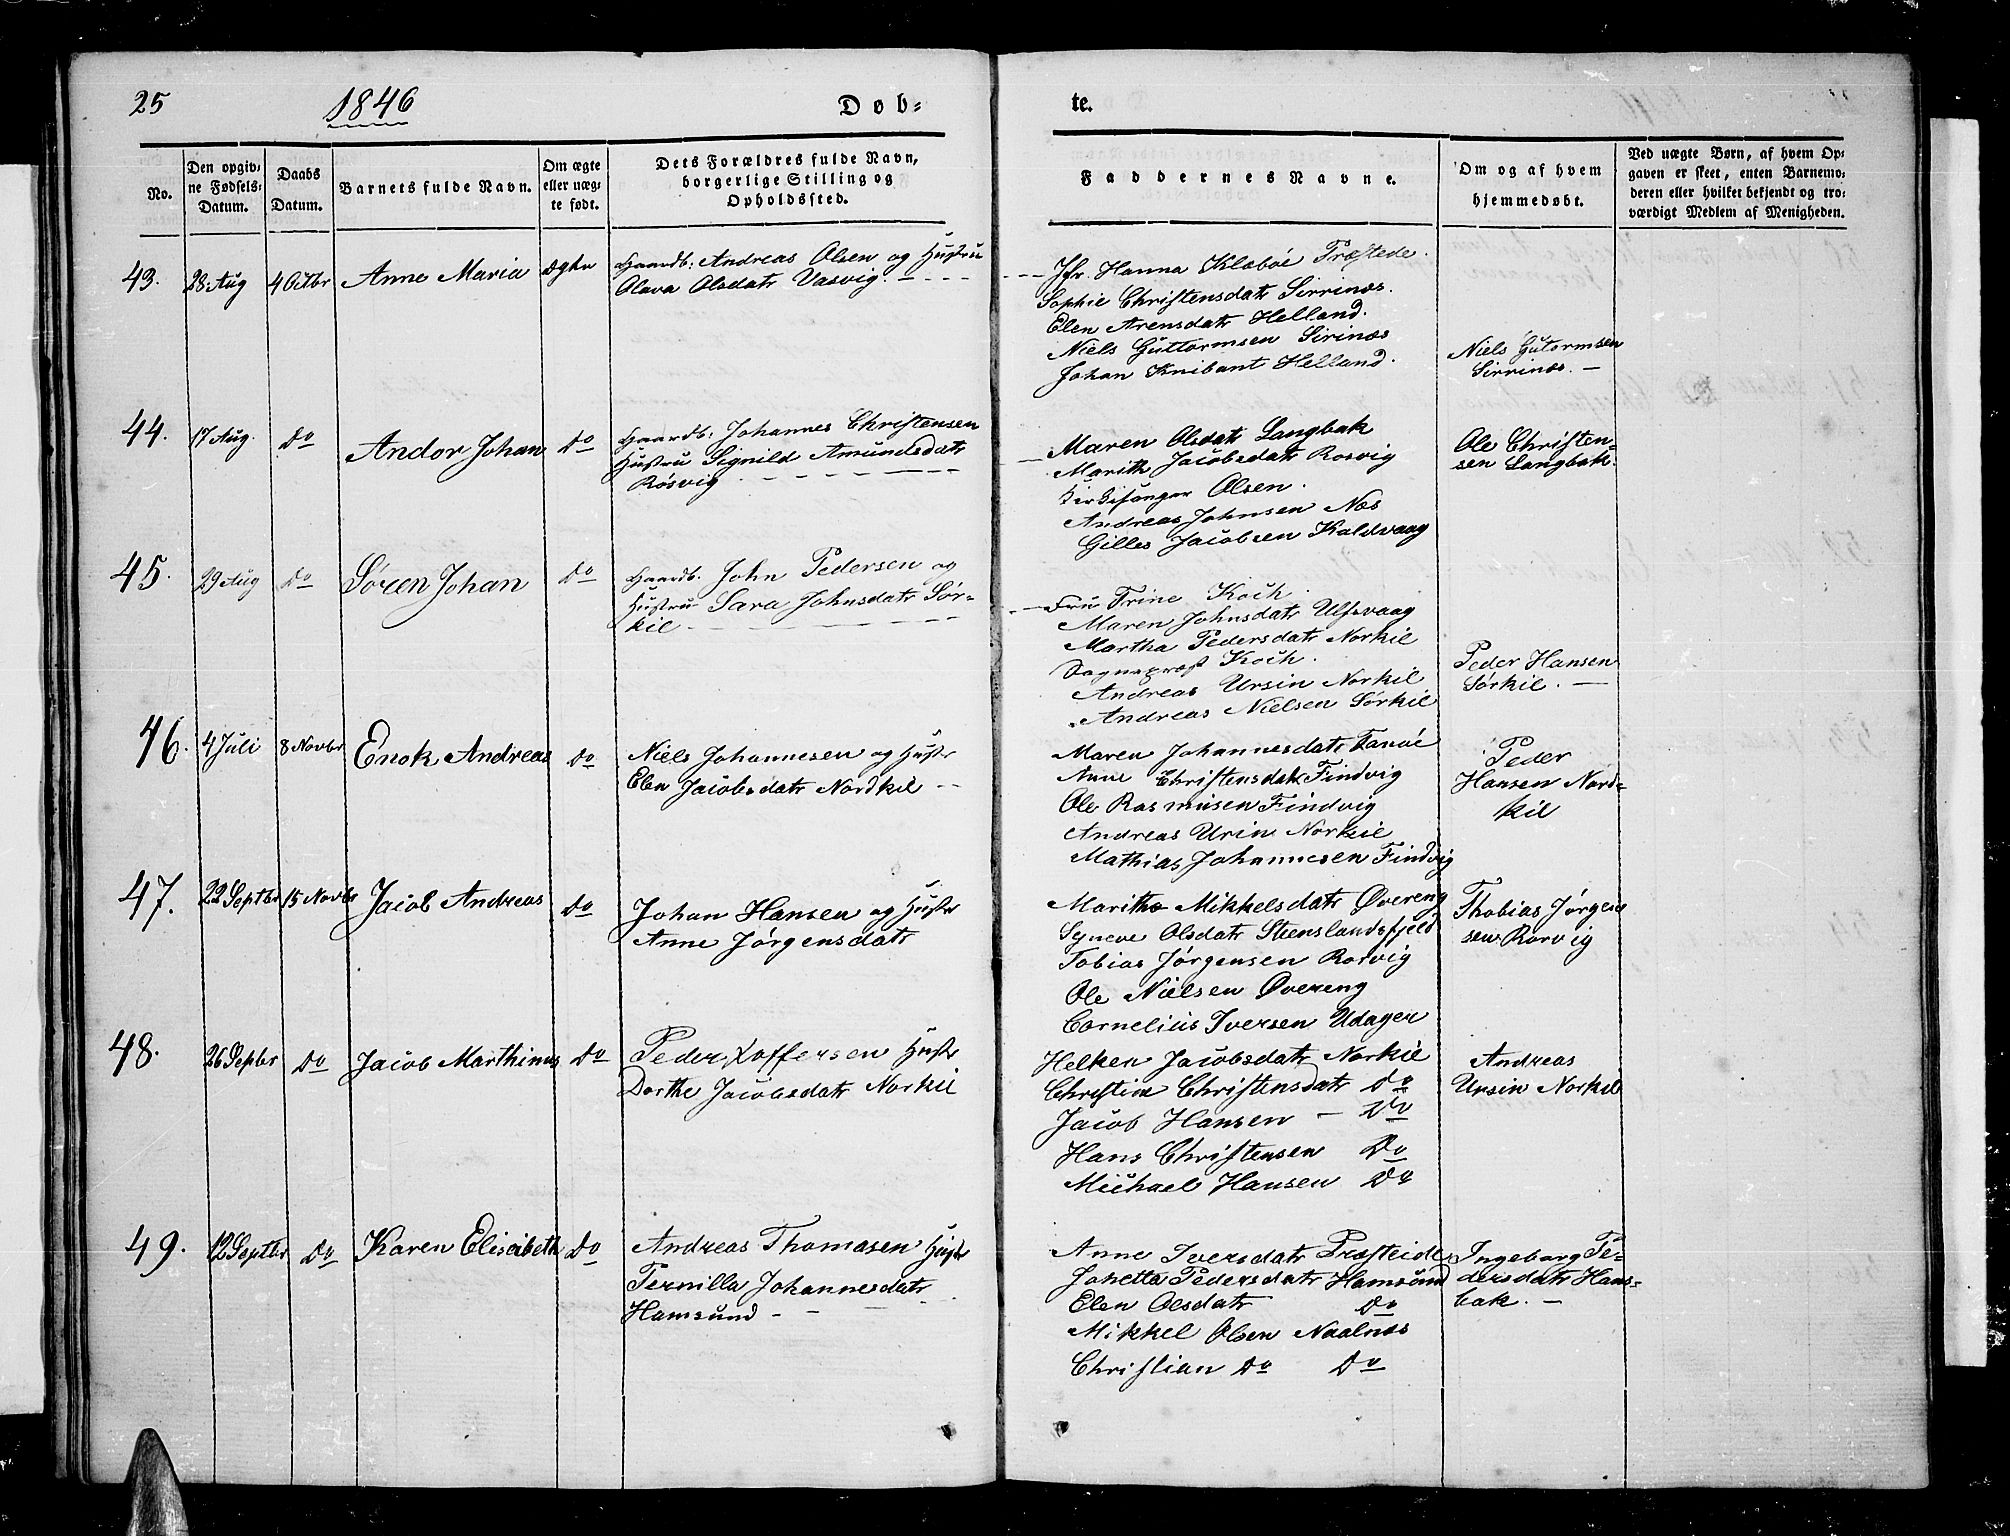 25
1846
Døb-
te.
No.
Den opgiv-
ne Fødsels-
Datum.
Daabs
Datum.
Barnets fulde Navn.
Om ægte
eller uæg-
te født.
Dets Forældres fulde Navn,
borgerlige Stilling og
Opholdssted.
Faddernes Navne.
Om og af hvem
hjemmedøbt.
Ved uægte Børn, af hvem Op-
gaven er skeet, enten Barnemo-
deren eller hvilket bekjendt og tro-
værdigt Medlem af Menigheden.
43.
28 Aug
4 Octbr
Anne Maria
ægte
Haardb: Andreas Olsen og Hustru
Olava Olsdatr Vasvig.
Jfr. Hanna Klæbøe Præstede.
Sophie Christensdatr Sirrinæs.
Elen Arensdatr Helland.
Niels Guttormsen Sirinæs
Johan Knibant Helland.
Niels Gutormsen
Sirrinæs. —
44.
17 Aug.
Do
Andor Johan
Do
Haardb: Johannes Christensen
Hustru Signild Amundsdatr
Rösvig
Maren Olsdatr Langbak
Marith Jacobsdatr Rosvig
Kirkesanger Olsen.
Andreas Johnsen Næs
Gilles Jacobsen Kaldvaag
Ole Christen-
sen Langbak.
45.
29 Aug
Do
Søren Johan
Do
Haardb. John Pedersen og
Hustru Sara Johnsdatr Sør-
kil
Fru Trine Koch.
Maren Johnsdatr Ulfsvaag
Martha Pedersdatr Norkil
Sognepræst Koch.
Andreas Ursin Norkil
Andreas Nielsen Sörkil
Peder Hansen
Sörkil. —
46.
4 Juli
8 Novbr
Enok Andreas
Do
Niels Johannesen og Hustr
Elen Jacobsdatr Nordkil
Maren Johannesdatr Tanøe
Anne Christensdatr Findvig
Ole Rasmusen Findvig
Andreas Urin Norkil
Mathias Johannesen Findvig
Peder
Hansen Nord-
kil
47.
22 Septbr
15 Novbr
Jacob Andreas
Do
Johan Hansen og Hustr
Anne Jørgensdatr
Marithe Mikkelsdatr Øvereng
Syneve Olsdatr Steenslandsfjeld
Tobias Jørgensen Rorvig
Ole Nielsen Øvereng
Cornelius Iversen Udager
Thobias Jørgen
sen Rorvig
48.
26 Sepbr
Do
Jacob Marthinus
Do
Peder Koffersen Hustr
Dorthe Jacobsdatr Norkil
Helken Jacobsdatr Norkil
Christine Christensdatr Do
Jacob Hansen — Do
Hans Christensen Do
Michael Hansen Do
Andreas
Ursin Norkil
49.
12 Septbr
Do
Karen Eliseibeth
Do
Andreas Thomasen Hustr
Pernilla Johannesdatr
Hamsund
Anne Iversdatr Præsteide
Johetta Pedersdatr Hamsund
Elen Olsdatr Do
Mikkel Olsen Naalnæs
Christian Do Do
Ingeborg Pe-
dersdatr Hans-
bak. —